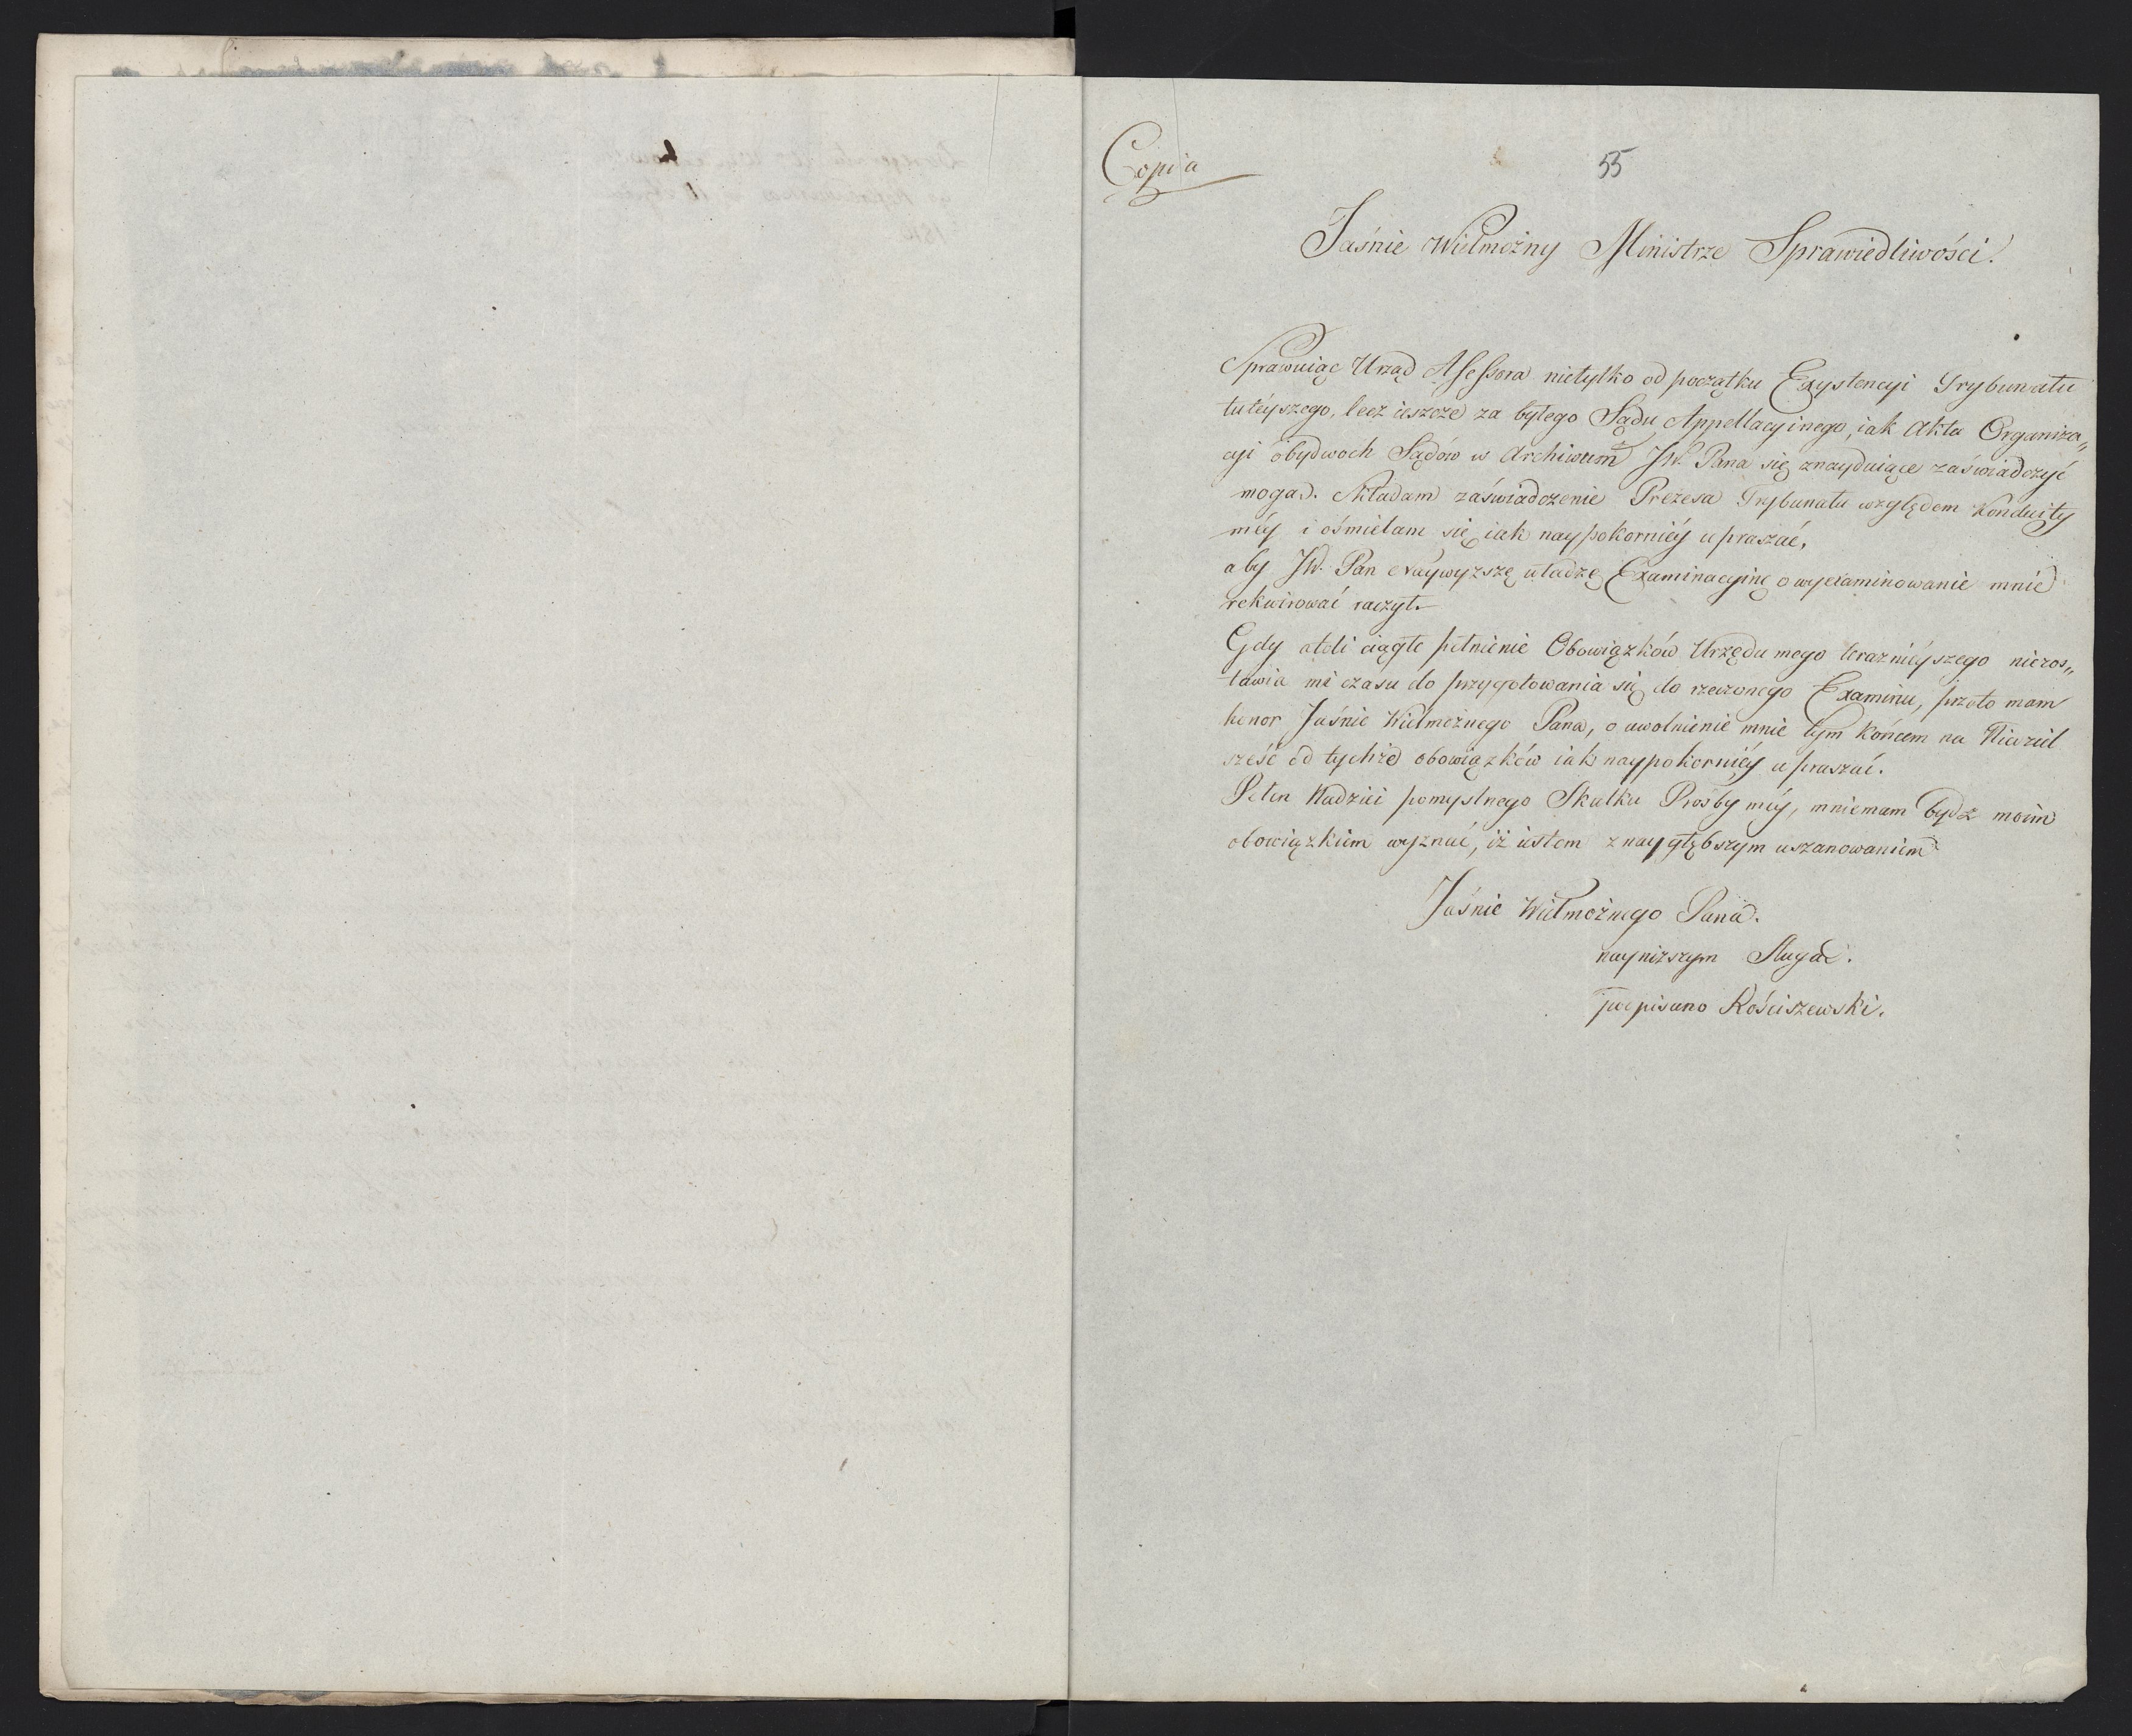 Copia
55
Jaśnie Wielmożny Ministrze Sprawiedliwości!
Sprawuiąc Urząd Assessora nietylko od początku Exystencyi Trybunału
tuteyszego, lecz ieszcze za byłego Sądu Appellacyinego, iak Akta Organiza„
cyi obydwoch Sądów w Archiwum JW. Pana się znayduiące zaświadczyć
mogą. Składam zaświadczenie Prezesa Trybunału względem Konduity
méy i ośmielam się iak naypokorniéy upraszać,
aby JW. Pan Naywyższą władzę Examinacyiną o wyexaminowanie mnie
rekwirować raczył.
Gdy atoli ciągłe pełnienie Obowiązków Urzędu mego teraznieyszego niezos„
tawia mi czasu do przygotowania się do rzeczonego Examinu, przeto mam
honor Jaśnie Wielmożnego Pana, o uwolnienie mnie tym końcem na Niedziel
sześć od tychże obowiązków iak naypokorniéy upraszać.
Pełen Nadziei pomyslnego Skutku Prośby méy, mniemam bydź moim
obowiązkiem wyznać, iż iestem z naygłębszym uszanowaniem
Jaśnie Wielmożnego Pana.
nayniższym Sługą.
podpisano Kościszewski.